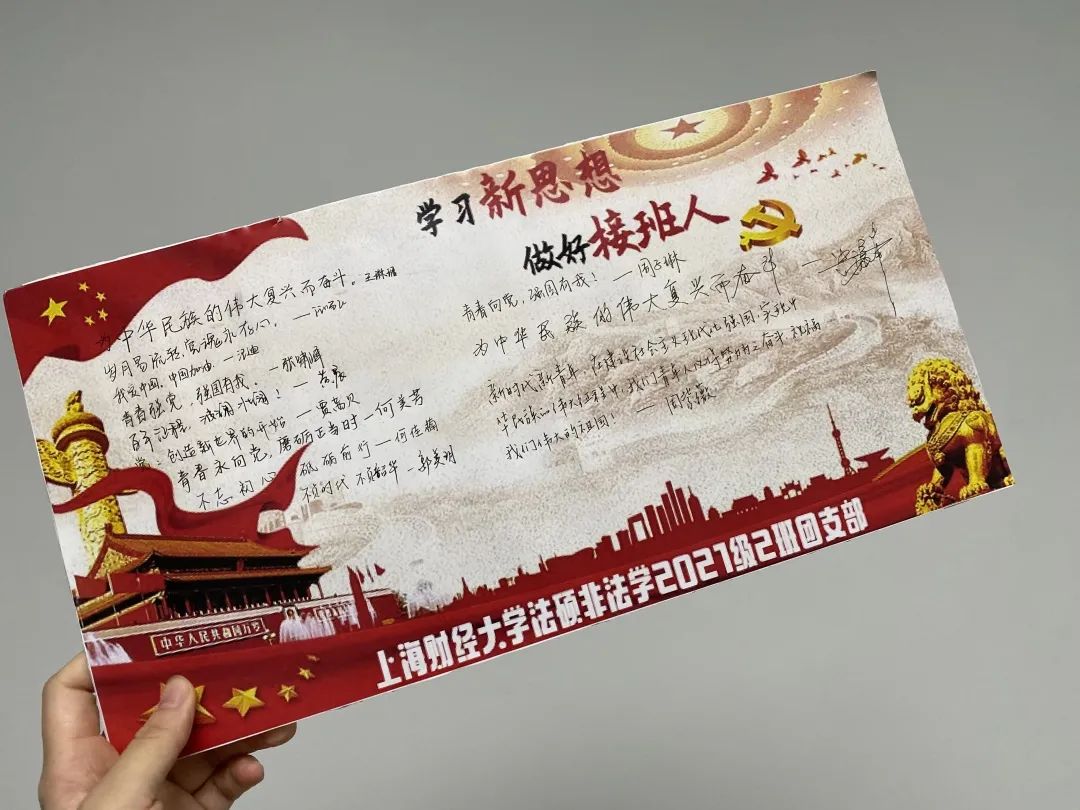 学习新思想
做好接班人
为中华民族的伟大复兴而奋斗。
岁月易流转,党魂永在心。
我爱中国,中国加油
青春强党,强国有我。
百年征程,波澜壮阔!
创造新世界的开始 — 贾
青春永向党,磨砺正当时 — 何美芳
不忘初心 砥砺前行 — 何佳楠
不负时代 不负韶华 — 郭美玥
青春向党,强国有我! — 周子琳
为中华民族的伟大复兴而奋斗
新时代新青年,在建设社会主义现代化强国,实现中
华民族的伟大征程中,我们青年人以 祝福
我们伟大的祖国! — 周
中华人民共和国万岁
上海财经大学法硕非法学2021级2班团支部